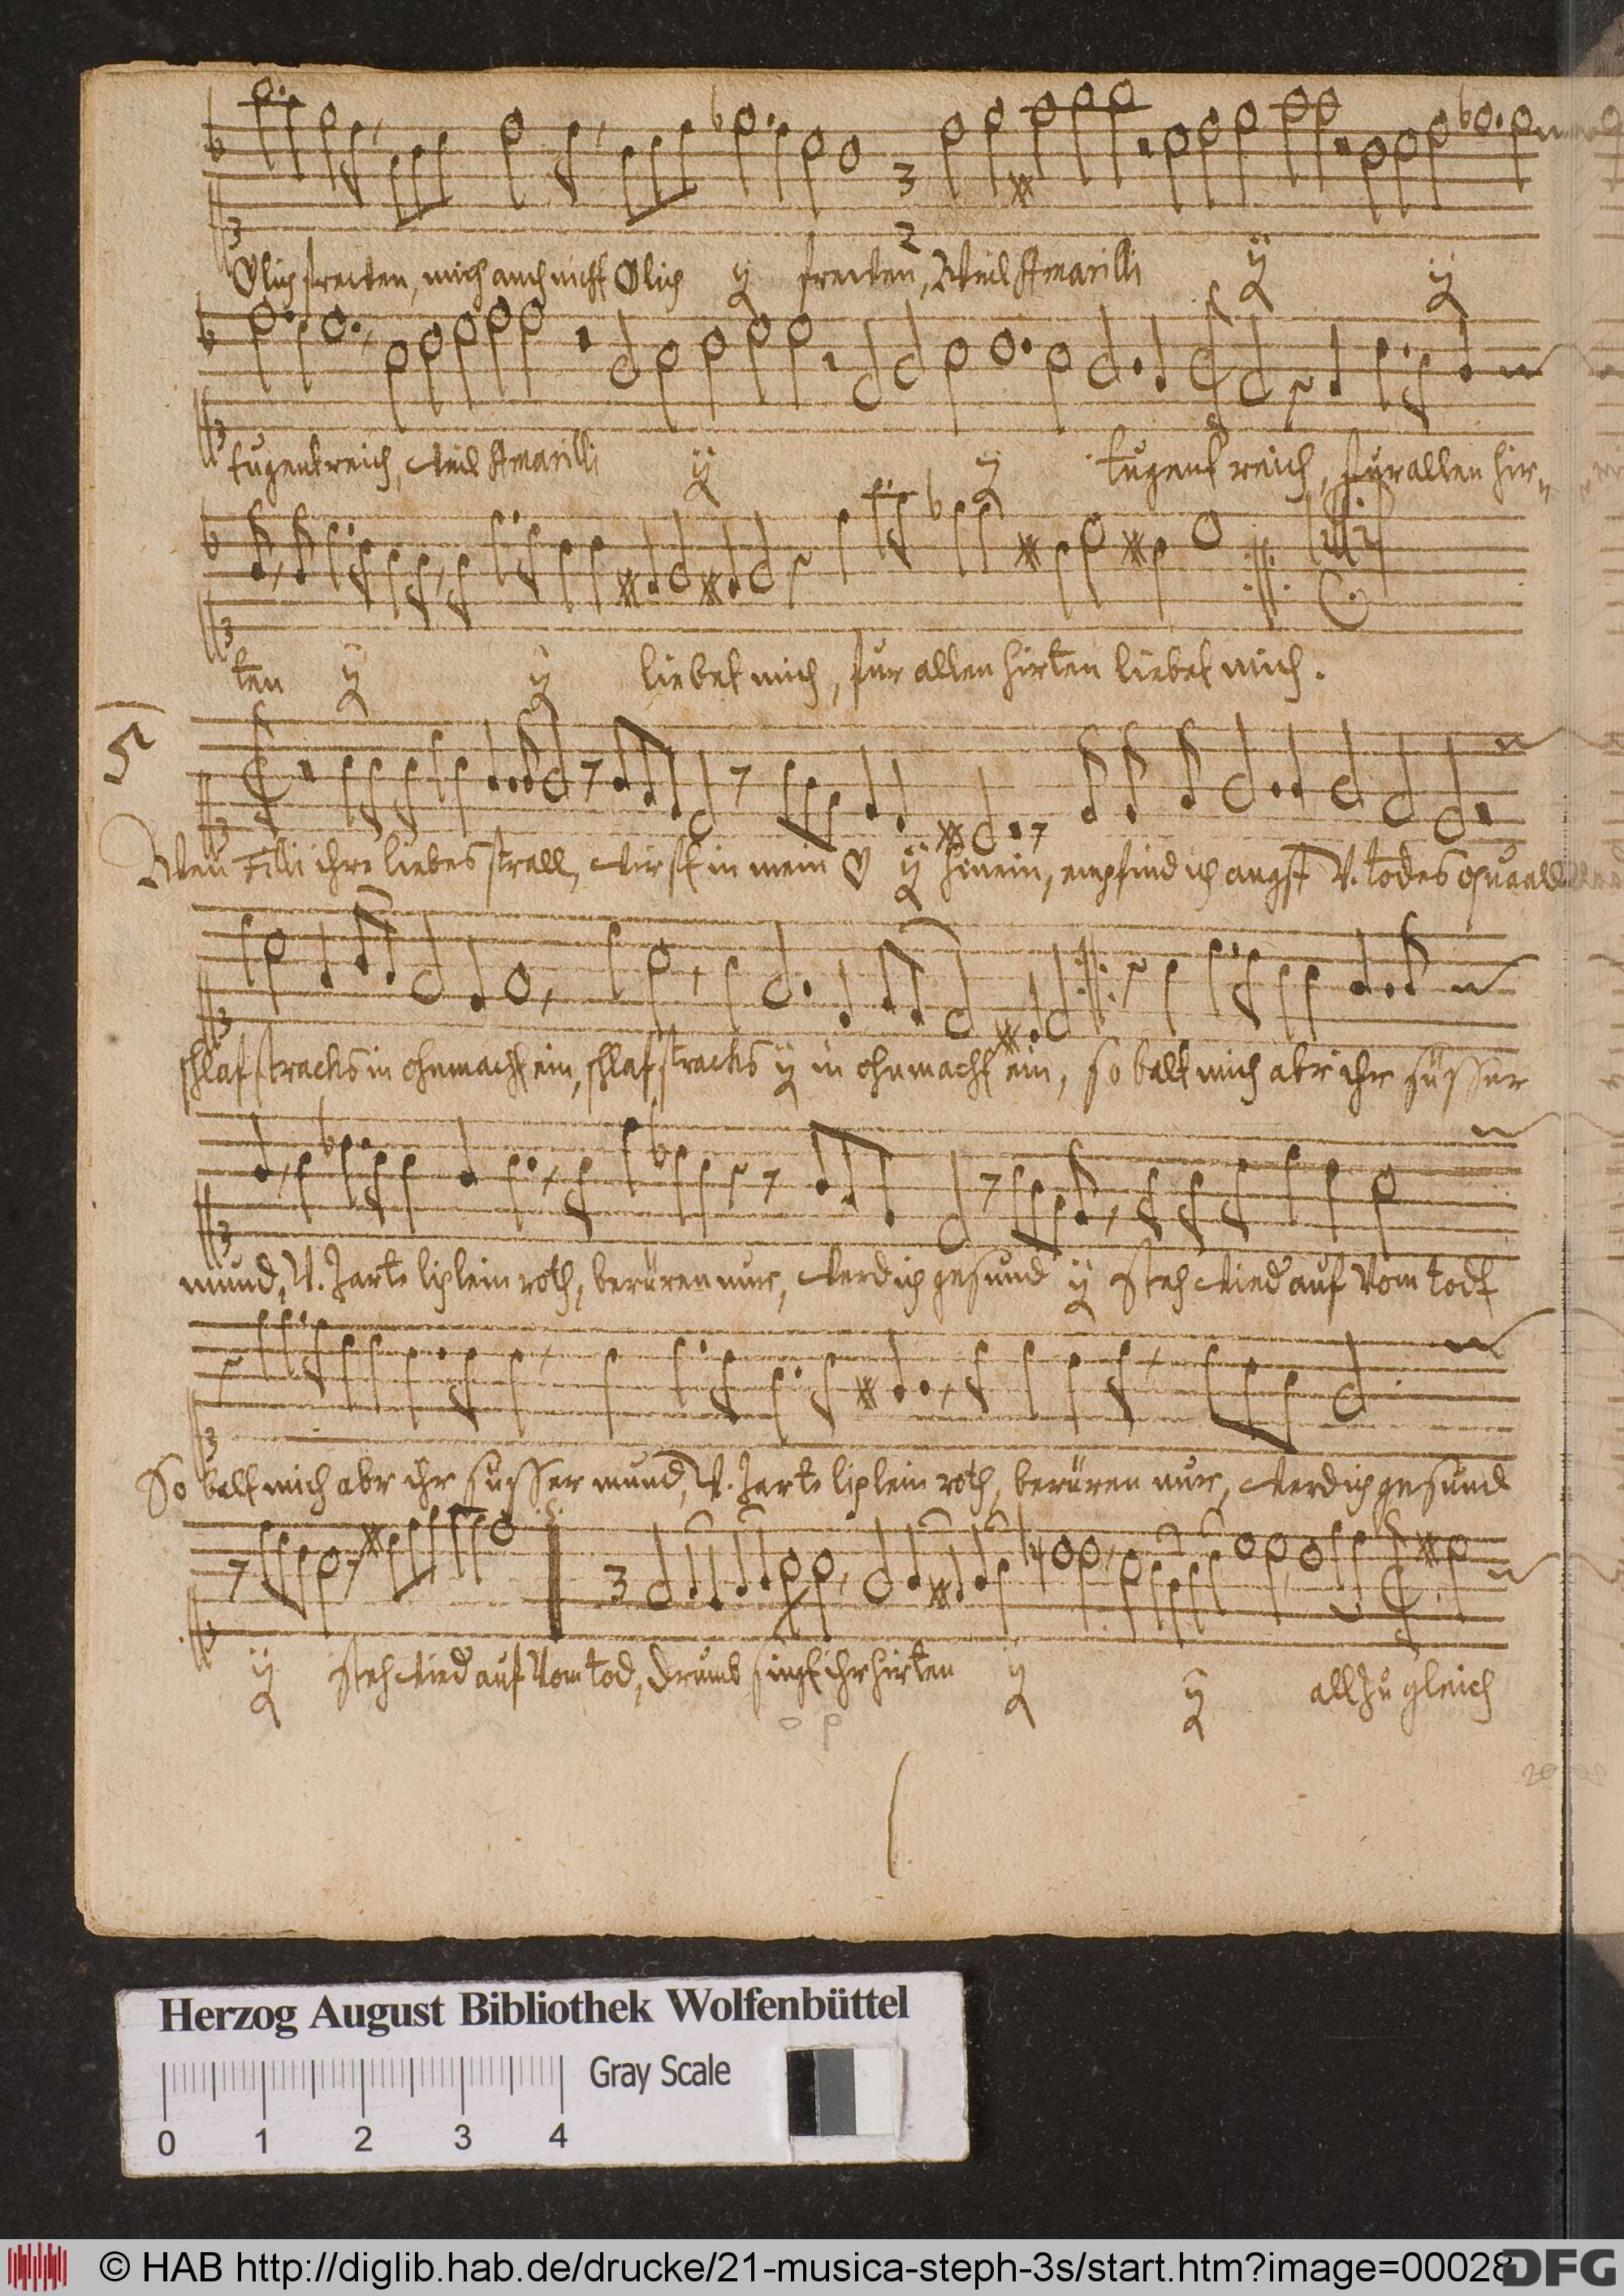 freiden, mich auch nicht ÿ freiden, Weil Amarilli ÿ ÿ
tugentreich, Weil Amarilli ÿ ÿ tugent reich, für allen hir„
ten ÿ ÿ liebet mich, für allen hirten liebet mich.
5
Wen Filli ihre liebes strall, wirfft in mein ÿ hinein, empfind ich angst V. todes quaall
schlaf stracks in ohnmacht ein, schlaf stracks ÿ in ohnmacht ein, so balt mich abr ihr süsser
mund, V. Zarte liplein roth, berüren nur, werd ich gesund ÿ steh wied auf Vom todt
So balt mich abr ihr süsser mund, V. Zarte liplein roth, berüren nur, werd ich gesund
ÿ steh wied auf Vom tod, drumb singt ihr hirten ÿ ÿ all zu gleich
Herzog August Bibliothek Wolfenbüttel
Gray Scale
0 1 2 3 4
© HAB http://diglib.hab.de/drucke/21-musica-steph-3s/start.htm?image=00028
DFG